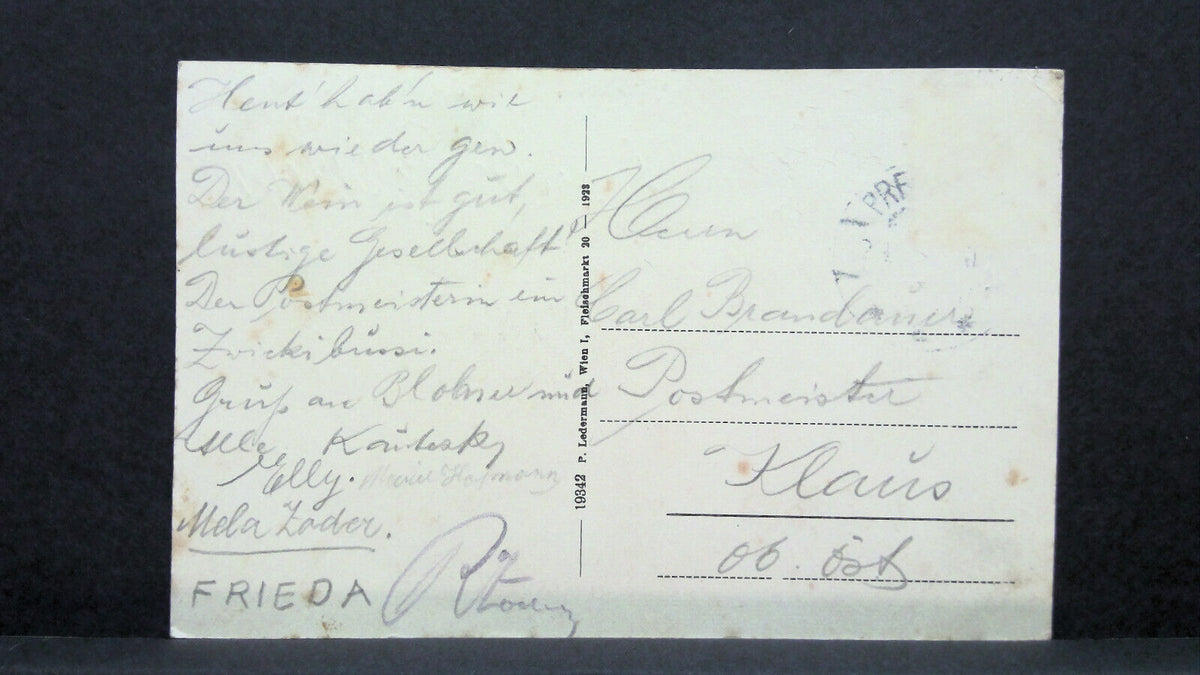 Heut' hab'n wir
uns wieder gen.
Der Wein ist gut,
lustige Gesellschaft
Der Postmeisterin ein
Zwickibussi.
Gruß an Blohner und
Alle Kautesky
Elly. Hofmann
Mela Zoder.
FRIEDA
19342 P. Ledermann, Wien I, Fleischmarkt 20 — 1928
PRF
Herrn
Carl Brandauer
Postmeister
Klaus
ob. Öst